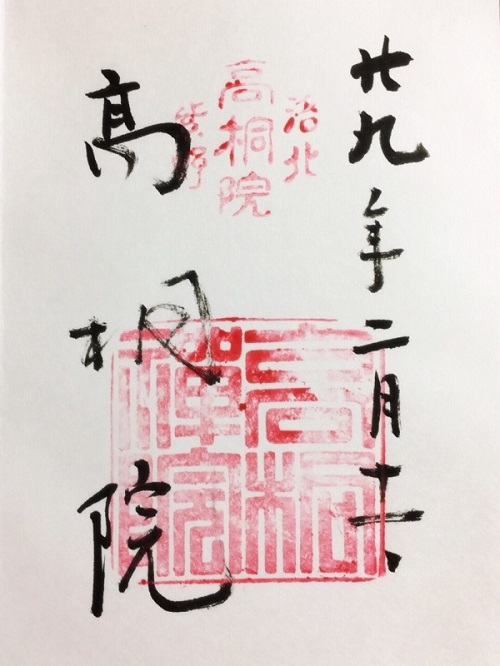 廿九年二月十六
洛北
高桐院
紫野
高桐院
高桐
禪院